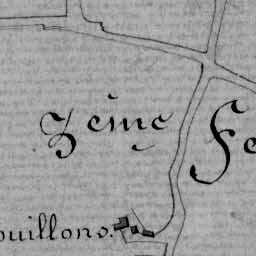 3eme
Fe
ouillons.